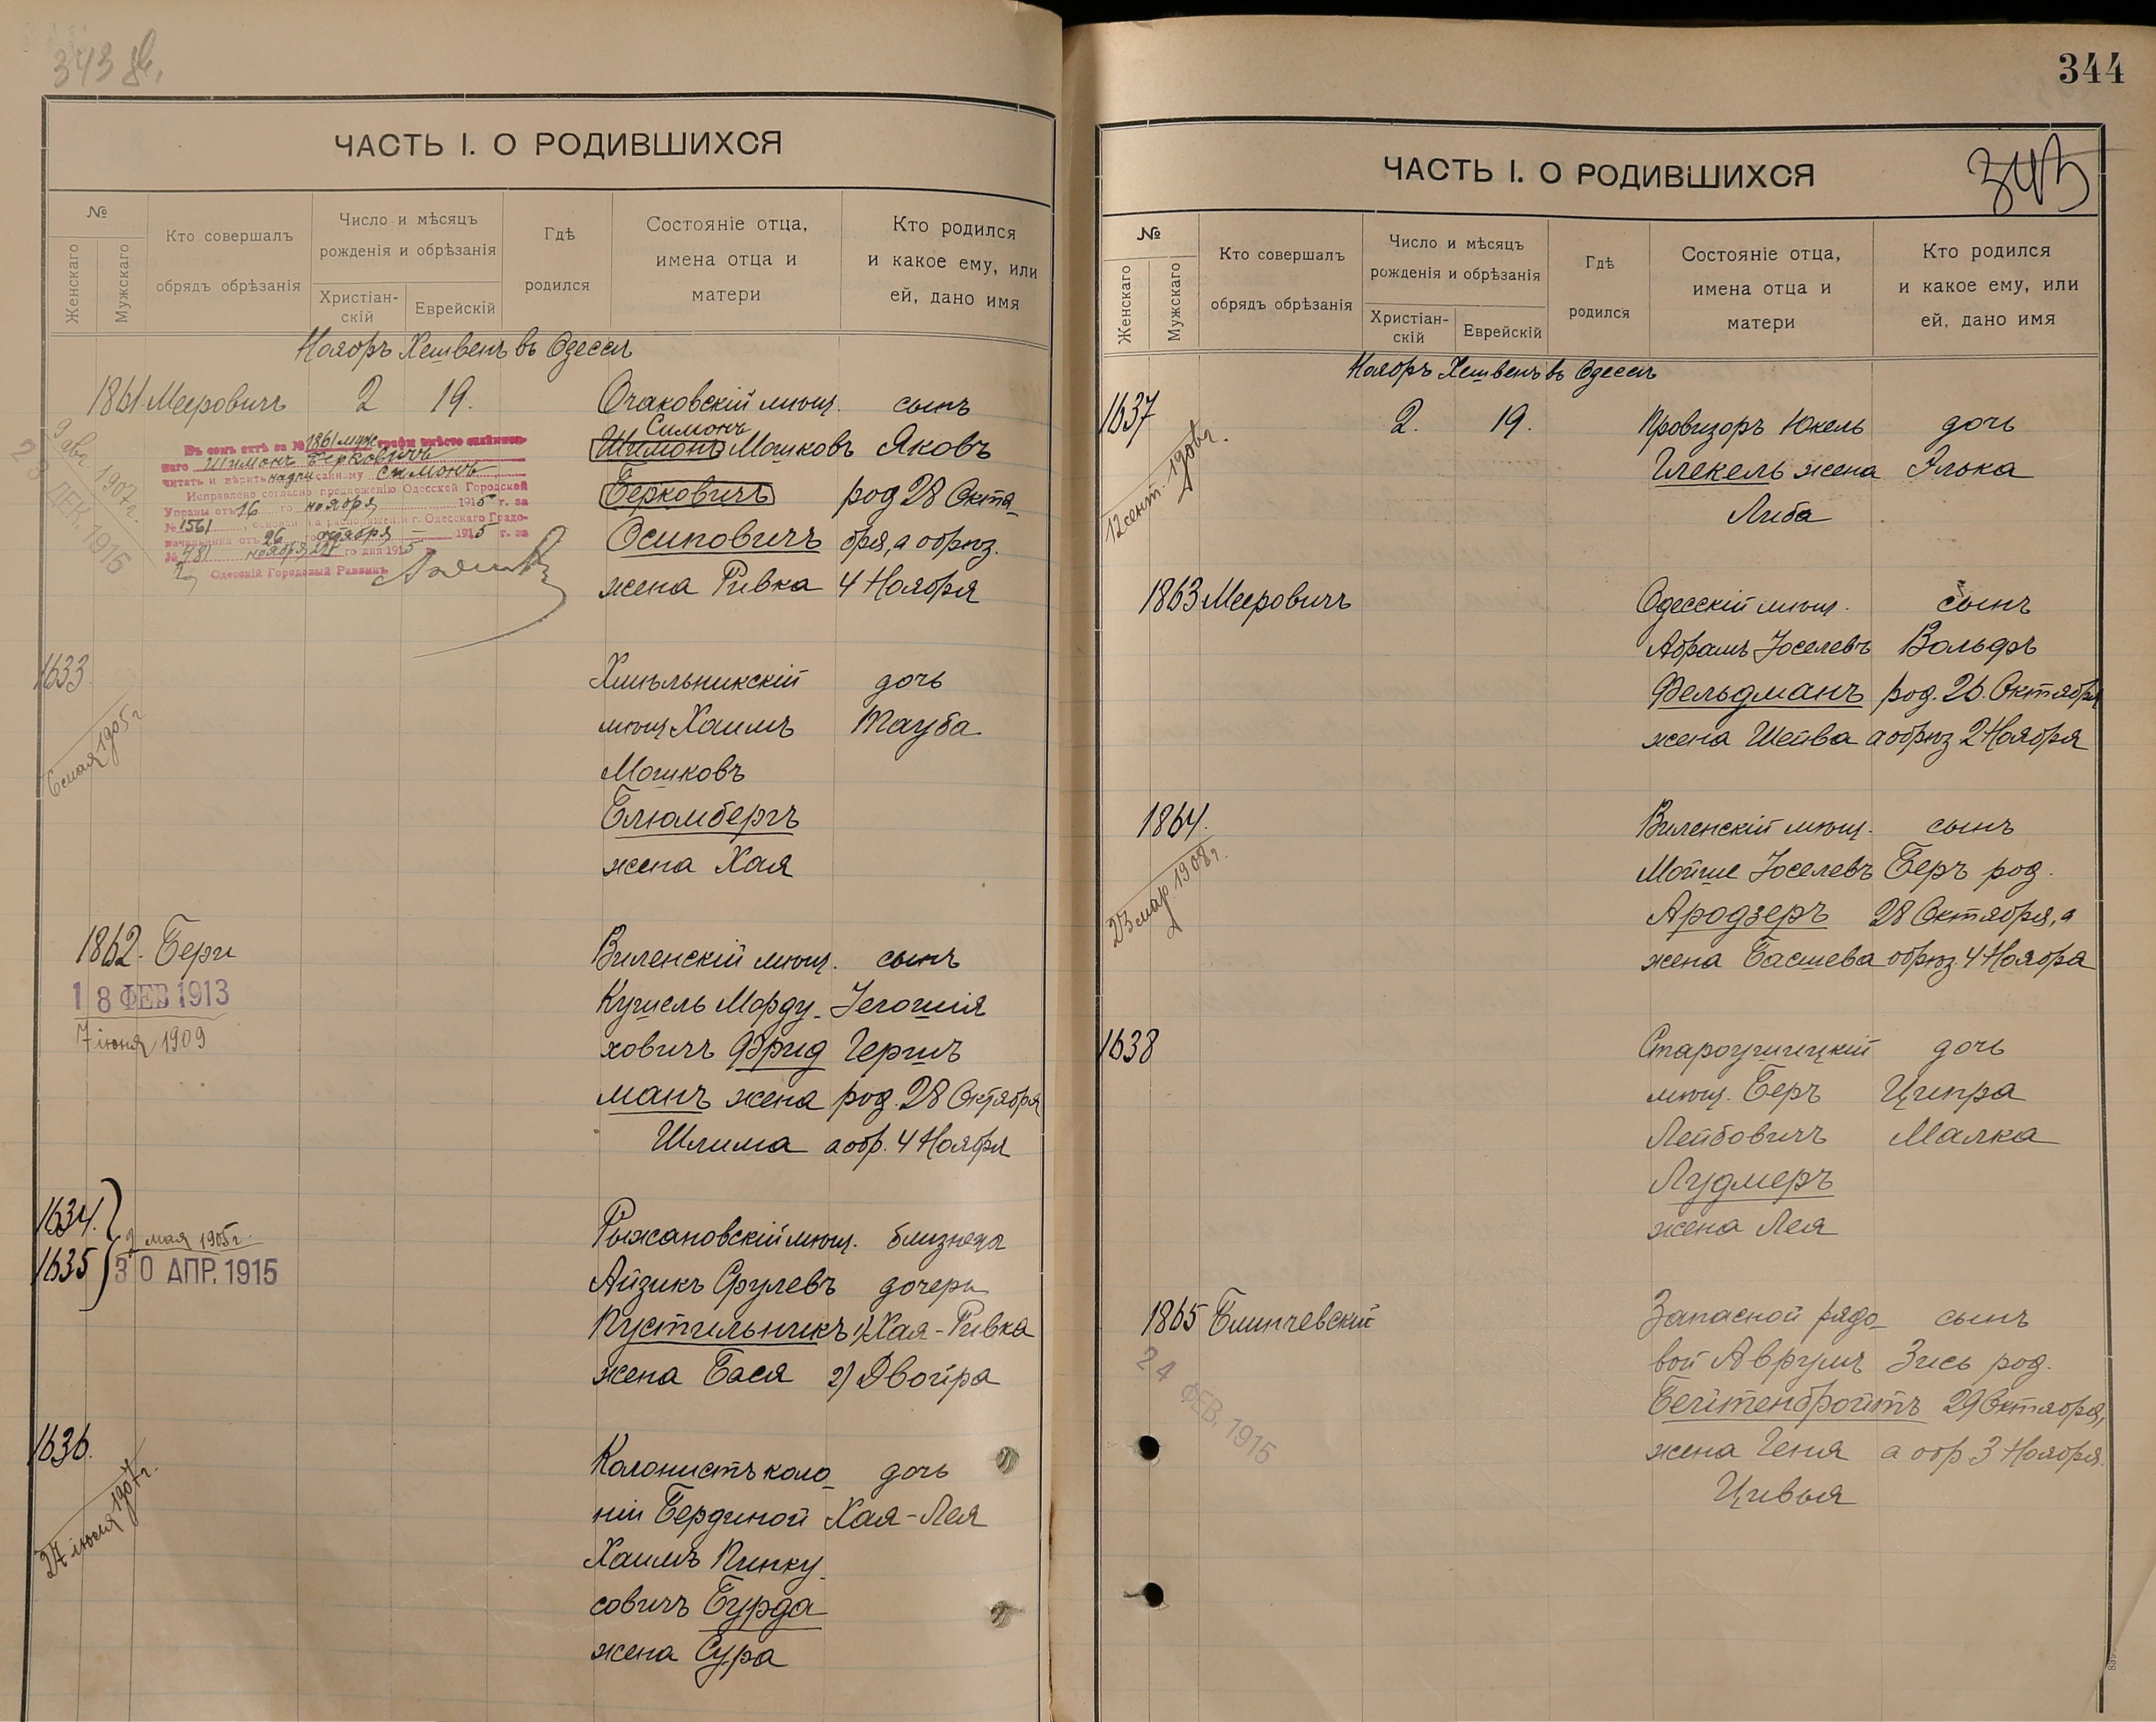 343 об.
ЧАСТЬ I. О РОДИВШИХСЯ
№
Женскаго
Мужскаго
Кто совершалъ
обрядъ обрѣзанія
Число и мѣсяцъ
рожденія и обрѣзанія
Христіан-
скій
Еврейскій
Гдѣ
родился
Состояніе отца,
имена отца и
матери
Кто родился
и какое ему, или
ей, дано имя
Ноябрь Хешвенъ въ Одессѣ
1861 Мееровичъ 2 19. Очаковскій мѣщ. сынъ
Симонъ
Шимонъ Мошковъ Яковъ
Берковичъ род 28 Октя-
Осиповичъ бря, а обрѣз.
жена Ривка 4 Ноября
9 авг 1907 г.
23 ДЕК. 1915
Въ семъ актѣ за № 1861 муж графы вмѣсто
наго Шимонъ Берковичъ
читать и вѣрить надписанному Симонъ
Исправлено согласно предложенію Одесской Городской
Управы отъ 16 го ноября 1915 г. за
№ 1561, основан. на распоряженіи г. Одесскаго Градо-
начальника отъ 26 октября 1915 г. за
№ 481 ноября 27 го дня 1915
Одесскій Городовый Раввинъ
1633. Хмѣльникскій дочь
мѣщ Хаимъ Тауба
Мошковъ
Блюмбергъ
жена Хая
6 мая 1905 г
1862. Бери Виленскій мѣщ. сынъ
18 ФЕВ 1913
7 іюня 1909
Кушель Морду- Іегошія
ховичъ Фрид Гершъ
манъ жена род. 28 Октября
Шлима а обр. 4 Ноября
1634.
1635
2 мая 1905 г.
30 АПР. 1915
Рыжановскій мѣщ. близнецы
Айзикъ Срулевъ дочери
Пустильникъ 1) Хая-Ривка
жена Бася 2) Двойра
1636. Колонистъ коло- дочь
ніи Бердиной Хая-Лея
Хаимъ Пинку-
совичъ Бурда
жена Сура
24 іюля 1907 г.
344
345
ЧАСТЬ I. О РОДИВШИХСЯ
№
Женскаго
Мужскаго
Кто совершалъ
обрядъ обрѣзанія
Число и мѣсяцъ
рожденія и обрѣзанія
Христіан-
скій
Еврейскій
Гдѣ
родился
Состояніе отца,
имена отца и
матери
Кто родился
и какое ему, или
ей, дано имя
Ноябрь Хешвенъ въ Одессѣ
1637 2. 19. Провизоръ Юкель дочь
Глекель жена Элька
Либа
12 сент. 1906 г.
1863 Мееровичъ Одесскій мѣщ. сынъ
Абрамъ Іоселевъ Вольфъ
Фельдманъ род. 26. Октября
жена Шейва а обрѣз 2 Ноября
1864. Виленскій мѣщ. сынъ
Мойше Іоселевъ Беръ род.
Ародзеръ 28 Октября, а
жена Басшева обрѣз. 4 Ноября
23 мар 1908 г.
1638 Староушицкій дочь
мѣщ. Беръ Ципра
Лейбовичъ Малка
Лудмеръ
жена Лея
1865 Блинчевскій Запасной рядо- сынъ
вой Аврумъ Зись род.
Бейтенбройтъ 29 Октября,
жена Геня а обр 3 Ноября.
Цивья
24 ФЕВ. 1915